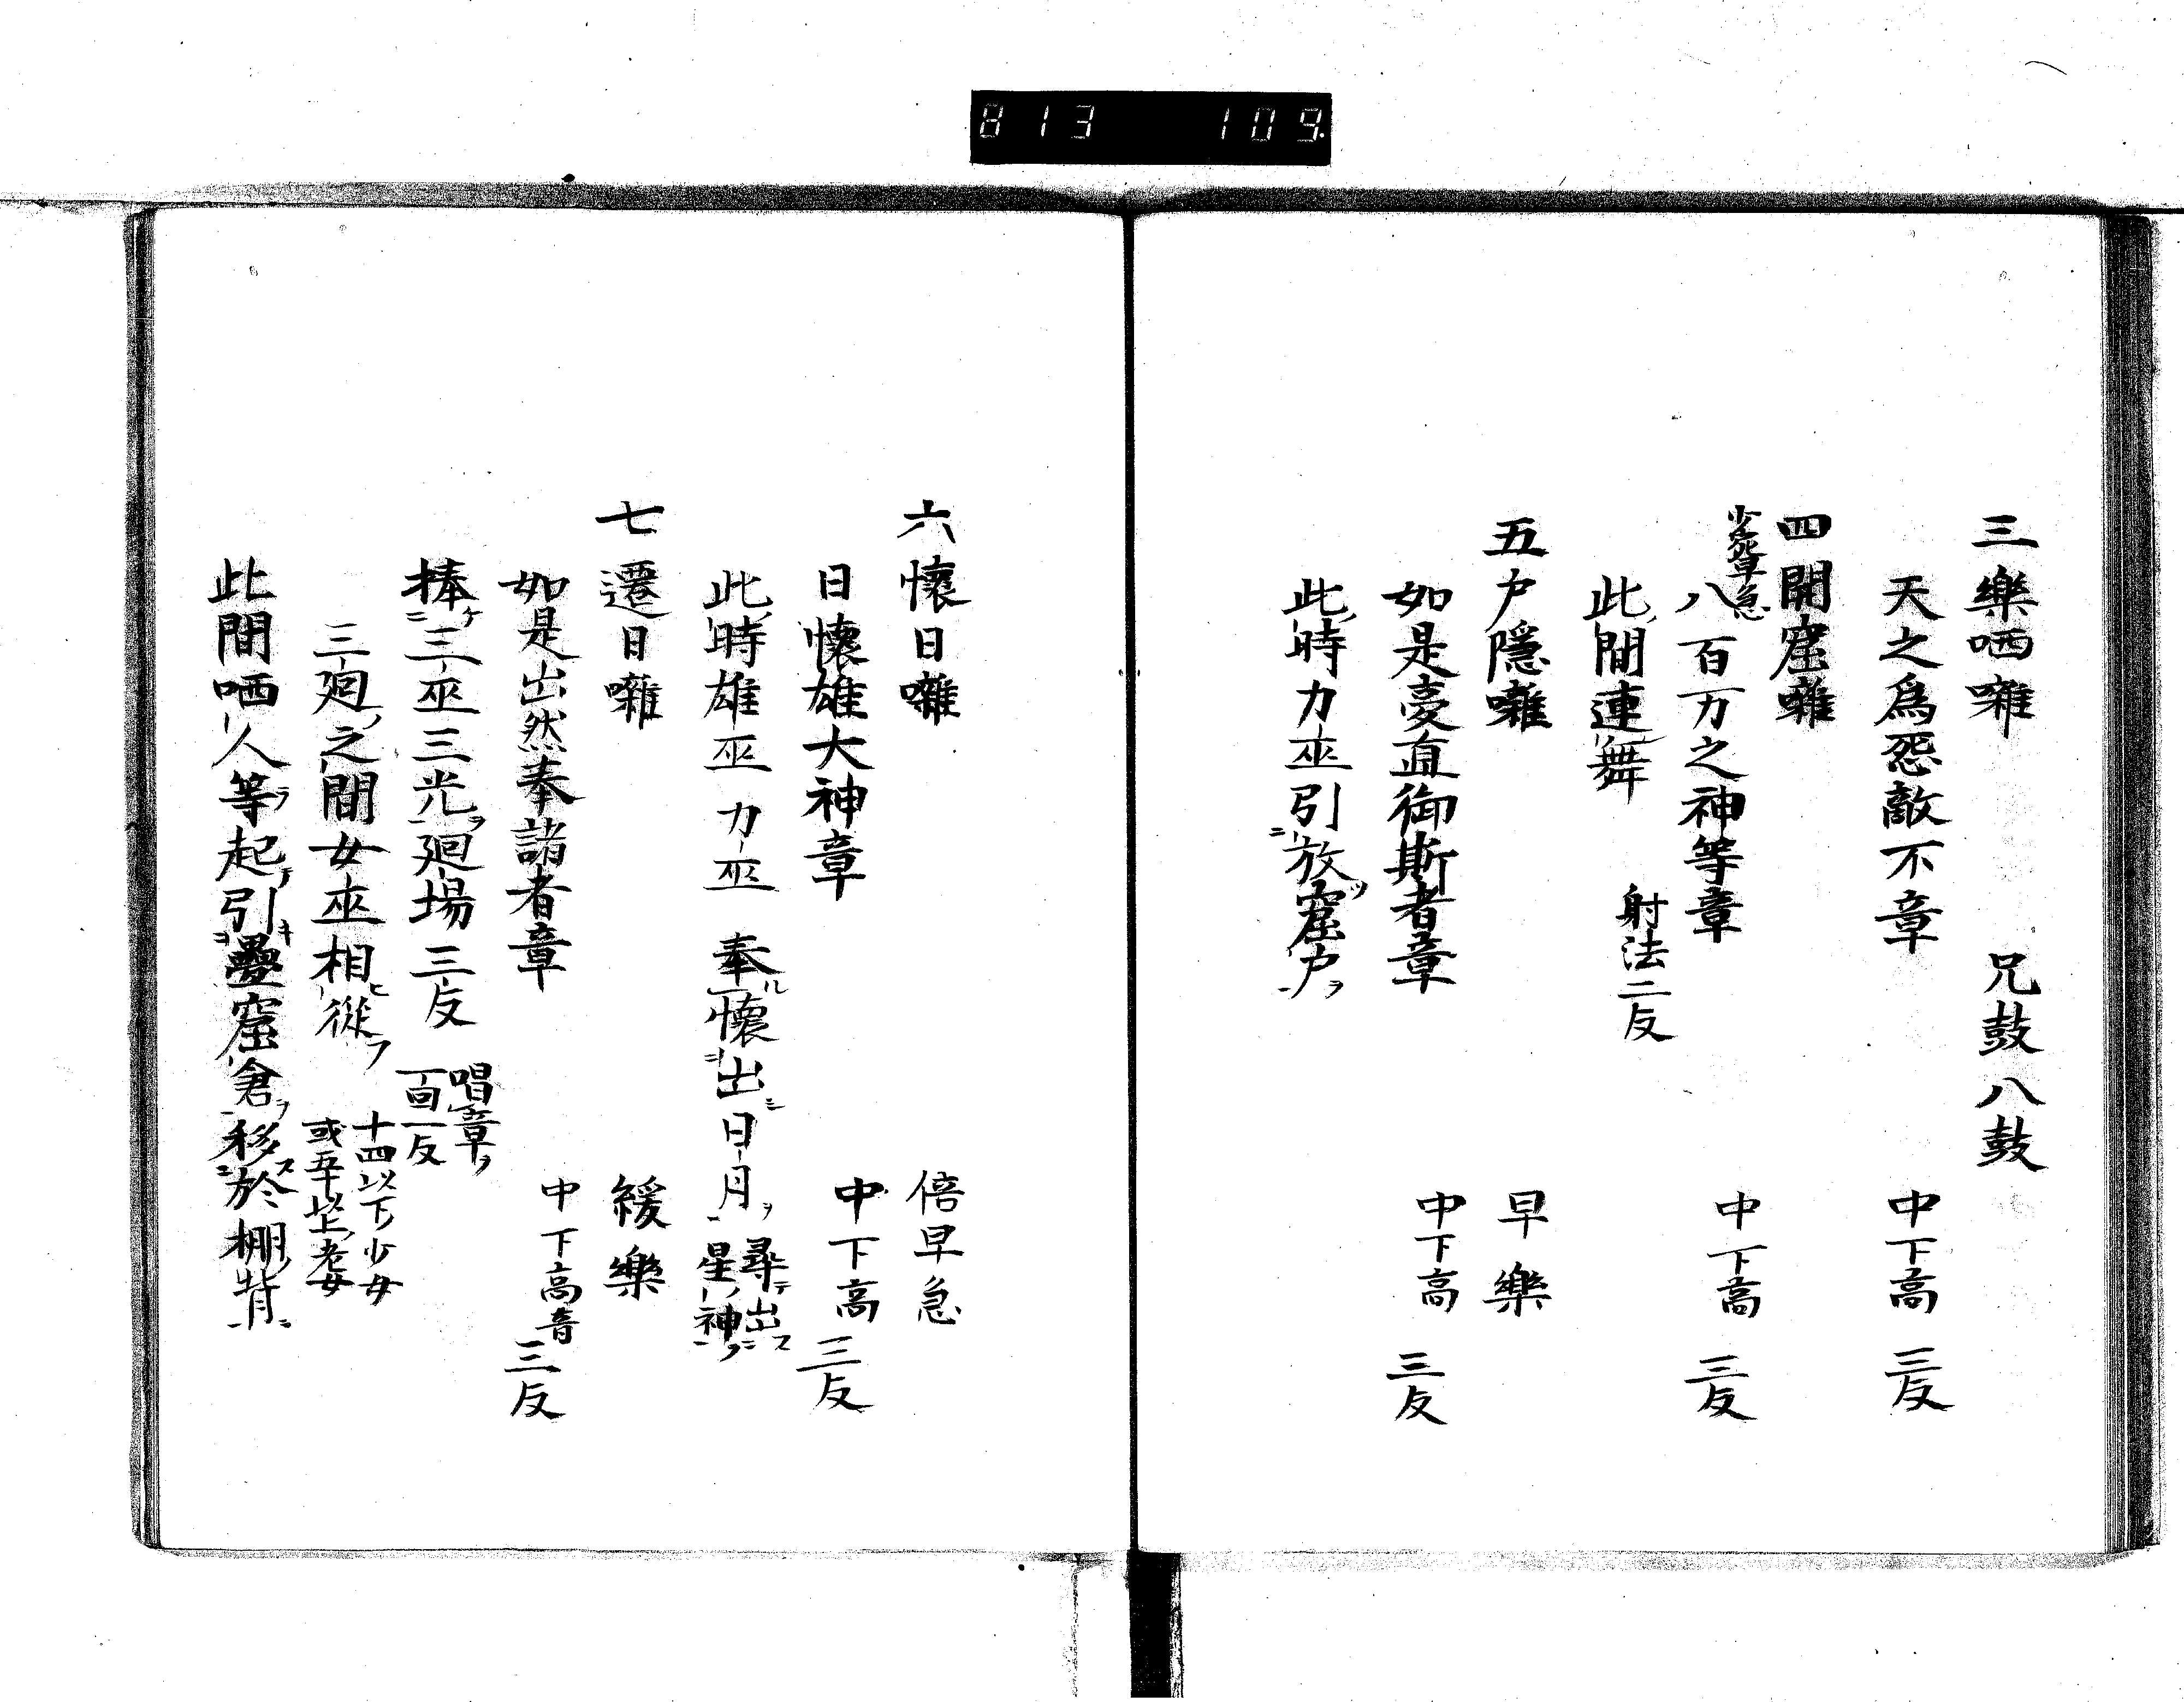 813 109
三樂哂囃 兄鼓八鼓
天之為怨敵不章 中下高 三反
四開窟囃
八百万之神等章 中下高 三反
此間連舞 射法二反
五戸隠囃 早樂
如是憂直御斯者章 中下高 三反
此時力巫引放窟戸ヲ
六懐日囃 倍早急
日懐雄大神章 中下高 三反
此時雄巫力巫奉懐出日月ヲ 尋出ス
星神ヲ
七遷日囃 緩樂
如是出然奉諸者章 中下高音 三反
捧ケ三巫三光ヲ廻場三反 唱章ヲ
一面一反
三廻之間女巫相従フ 十四以下少女
或五十以上老女
此間哂人等起引疊窟倉ヲ移ス於棚背ニ